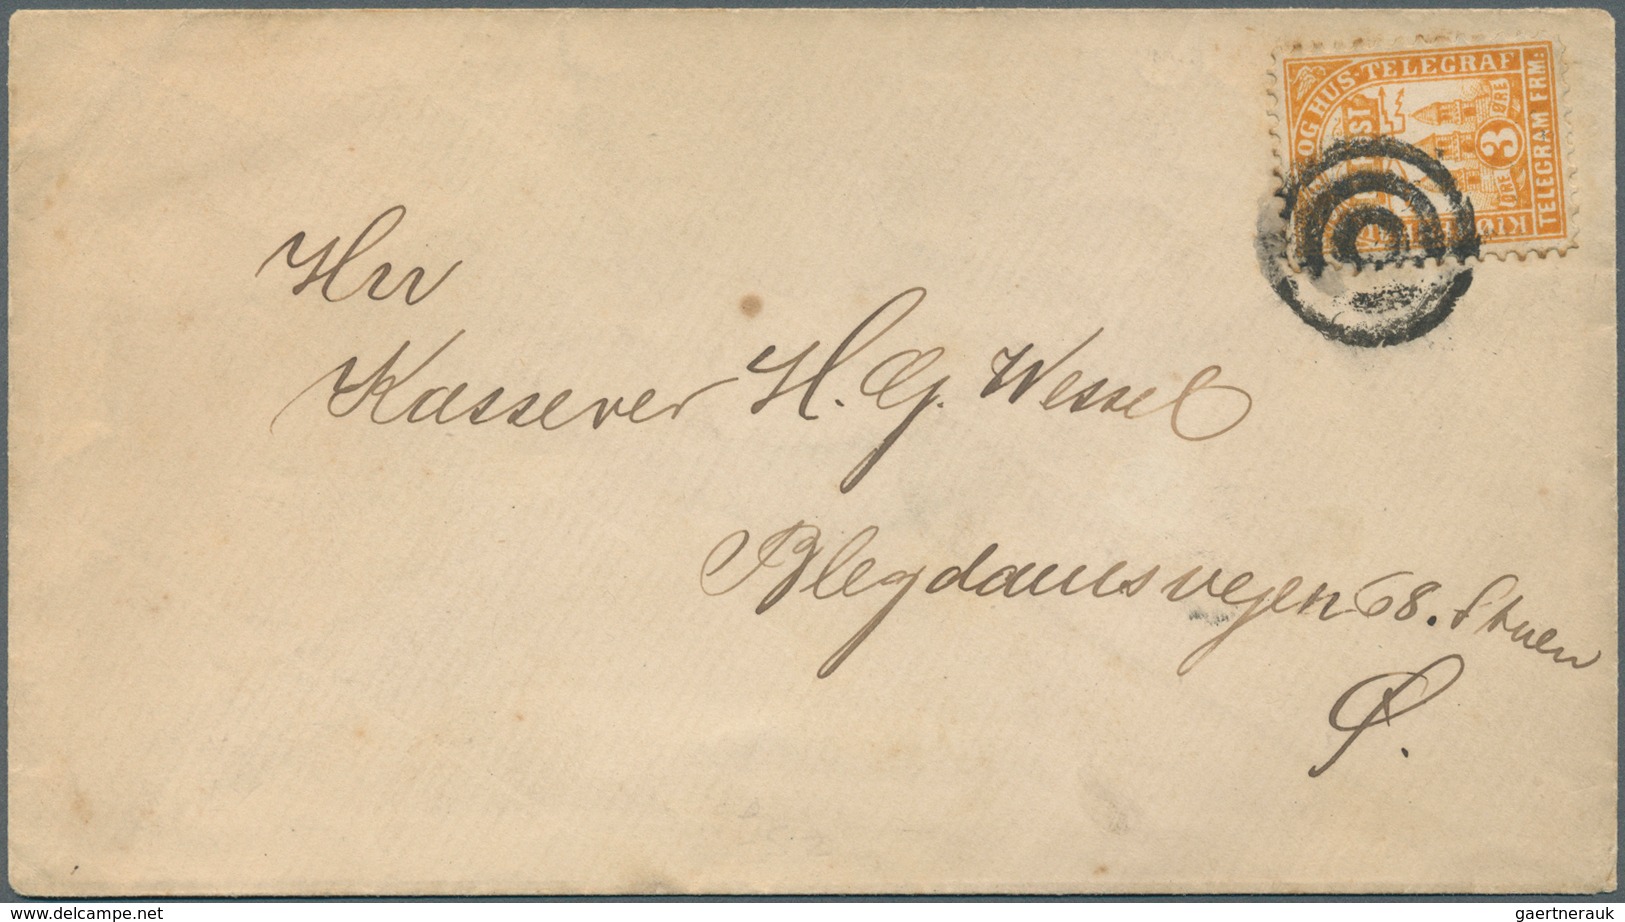 OG HUS-TELEGRAF
TELEGRAM FRM:
3
ØRE
ØRE
Hrr
Kasserer H. G. Wessel
Blegdamsvejen 68. Stuen
Ø.
www.delcampe.net
gaertnerauk